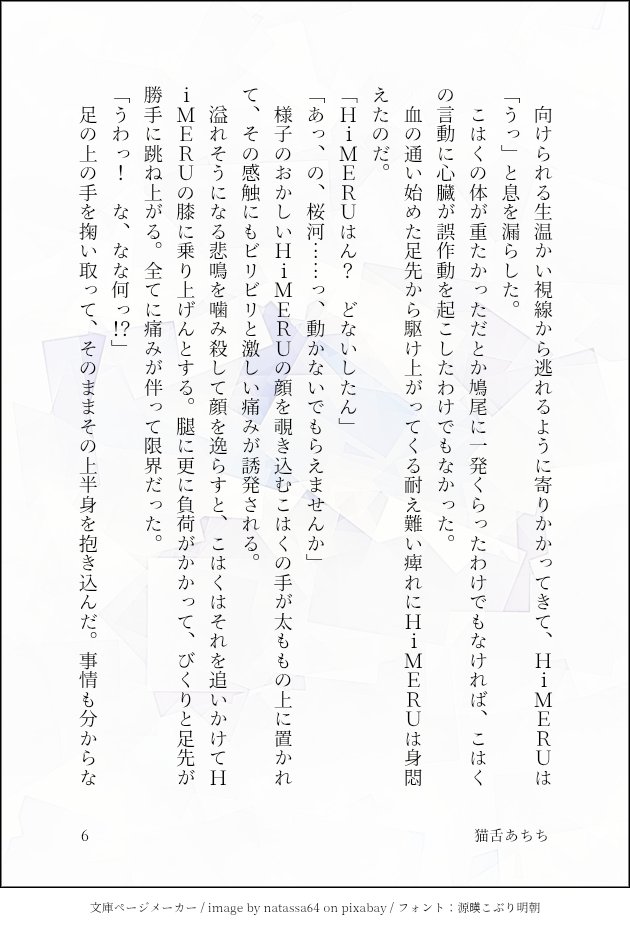 向けられる生温かい視線から逃れるように寄りかかってきて、HiMERUは
「うっ」と息を漏らした。
　こはくの体が重たかっただとか鳩尾に一発くらったわけでもなければ、こはく
の言動に心臓が誤作動を起こしたわけでもなかった。
　血の通い始めた足先から駆け上がってくる耐え難い痺れにHiMERUは身悶
えたのだ。
「HiMERUはん？　どないしたん」
「あっ、の、桜河……っ、動かないでもらえませんか」
　様子のおかしいHiMERUの顔を覗き込むこはくの手が太ももの上に置かれ
て、その感触にもビリビリと激しい痛みが誘発される。
　溢れそうになる悲鳴を噛み殺して顔を逸らすと、こはくはそれを追いかけてH
iMERUの膝に乗り上げんとする。腿に更に負荷がかかって、びくりと足先が
勝手に跳ね上がる。全てに痛みが伴って限界だった。
「うわっ！　な、なな何っ!?」
　足の上の手を掬い取って、そのままその上半身を抱き込んだ。事情も分からな
猫舌あちち
6
文庫ページメーカー / image by natassa64 on pixabay / フォント：源暎こぶり明朝